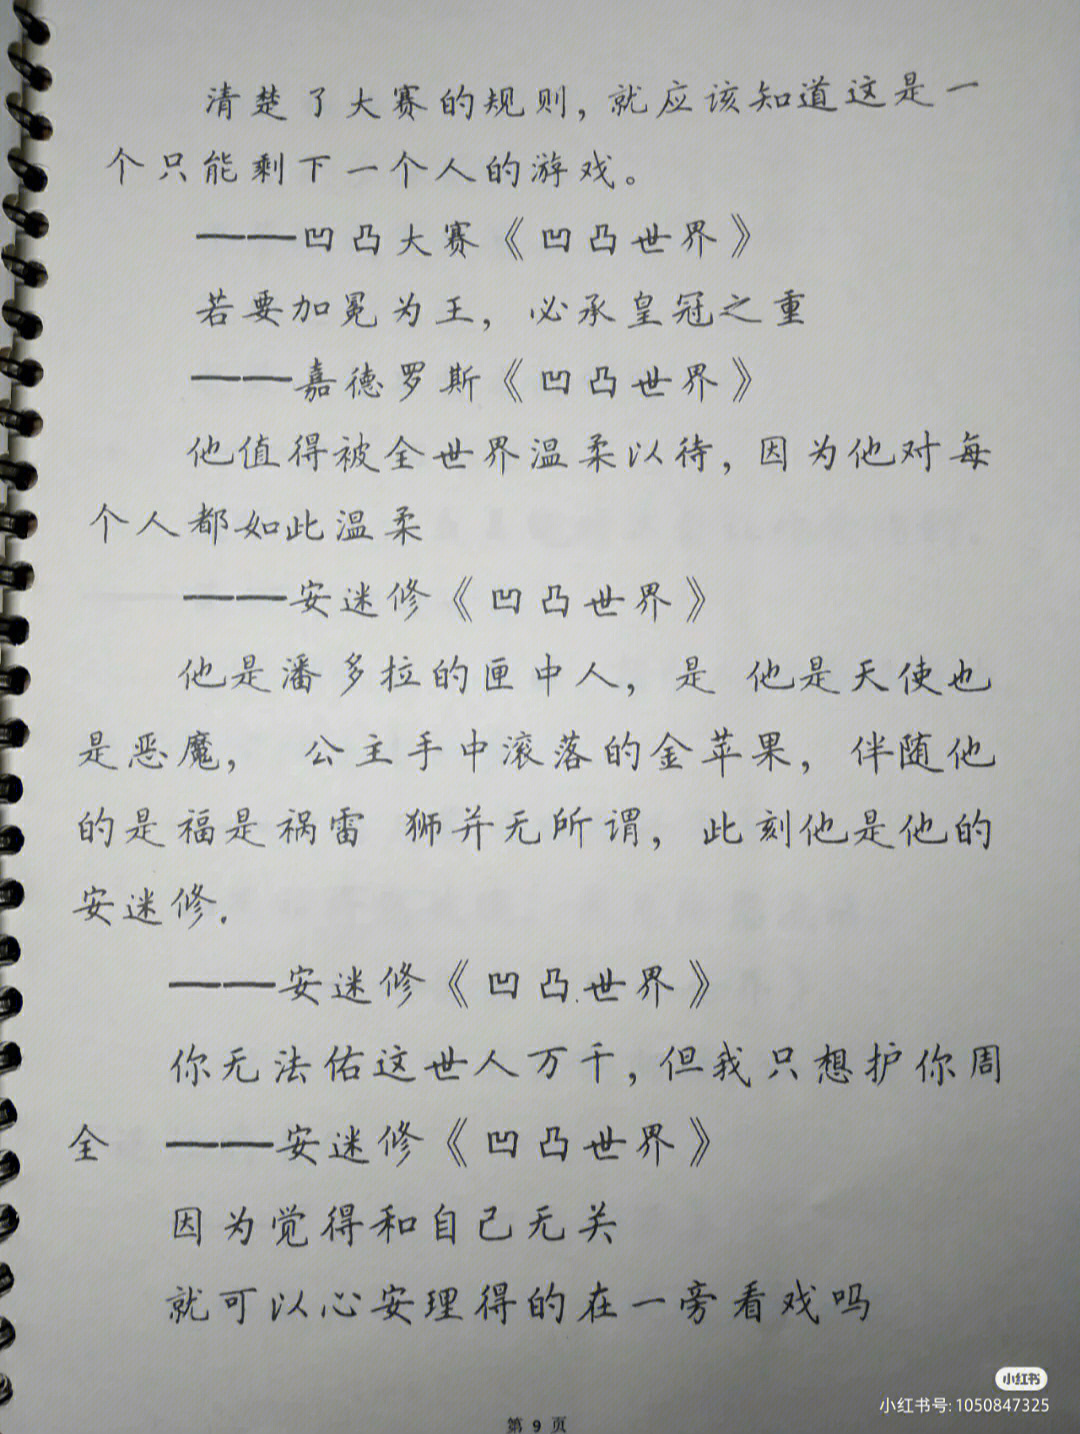 清楚了大赛的规则，就应该知道这是一
个只能剩下一个人的游戏。
——凹凸大赛《凹凸世界》
若要加冕为王，必承皇冠之重
——嘉德罗斯《凹凸世界》
他值得被全世界温柔以待，因为他对每
个人都如此温柔
——安迷修《凹凸世界》
他是潘多拉的匣中人，是 他是天使也
是恶魔， 公主手中滚落的金苹果，伴随他
的是福是祸雷 狮并无所谓，此刻他是他的
安迷修.
——安迷修《凹凸世界》
你无法佑这世人万千，但我只想护你周
全 ——安迷修《凹凸世界》
因为觉得和自己无关
就可以心安理得的在一旁看戏吗
小红书
小红书号: 1050847325
第 9 页